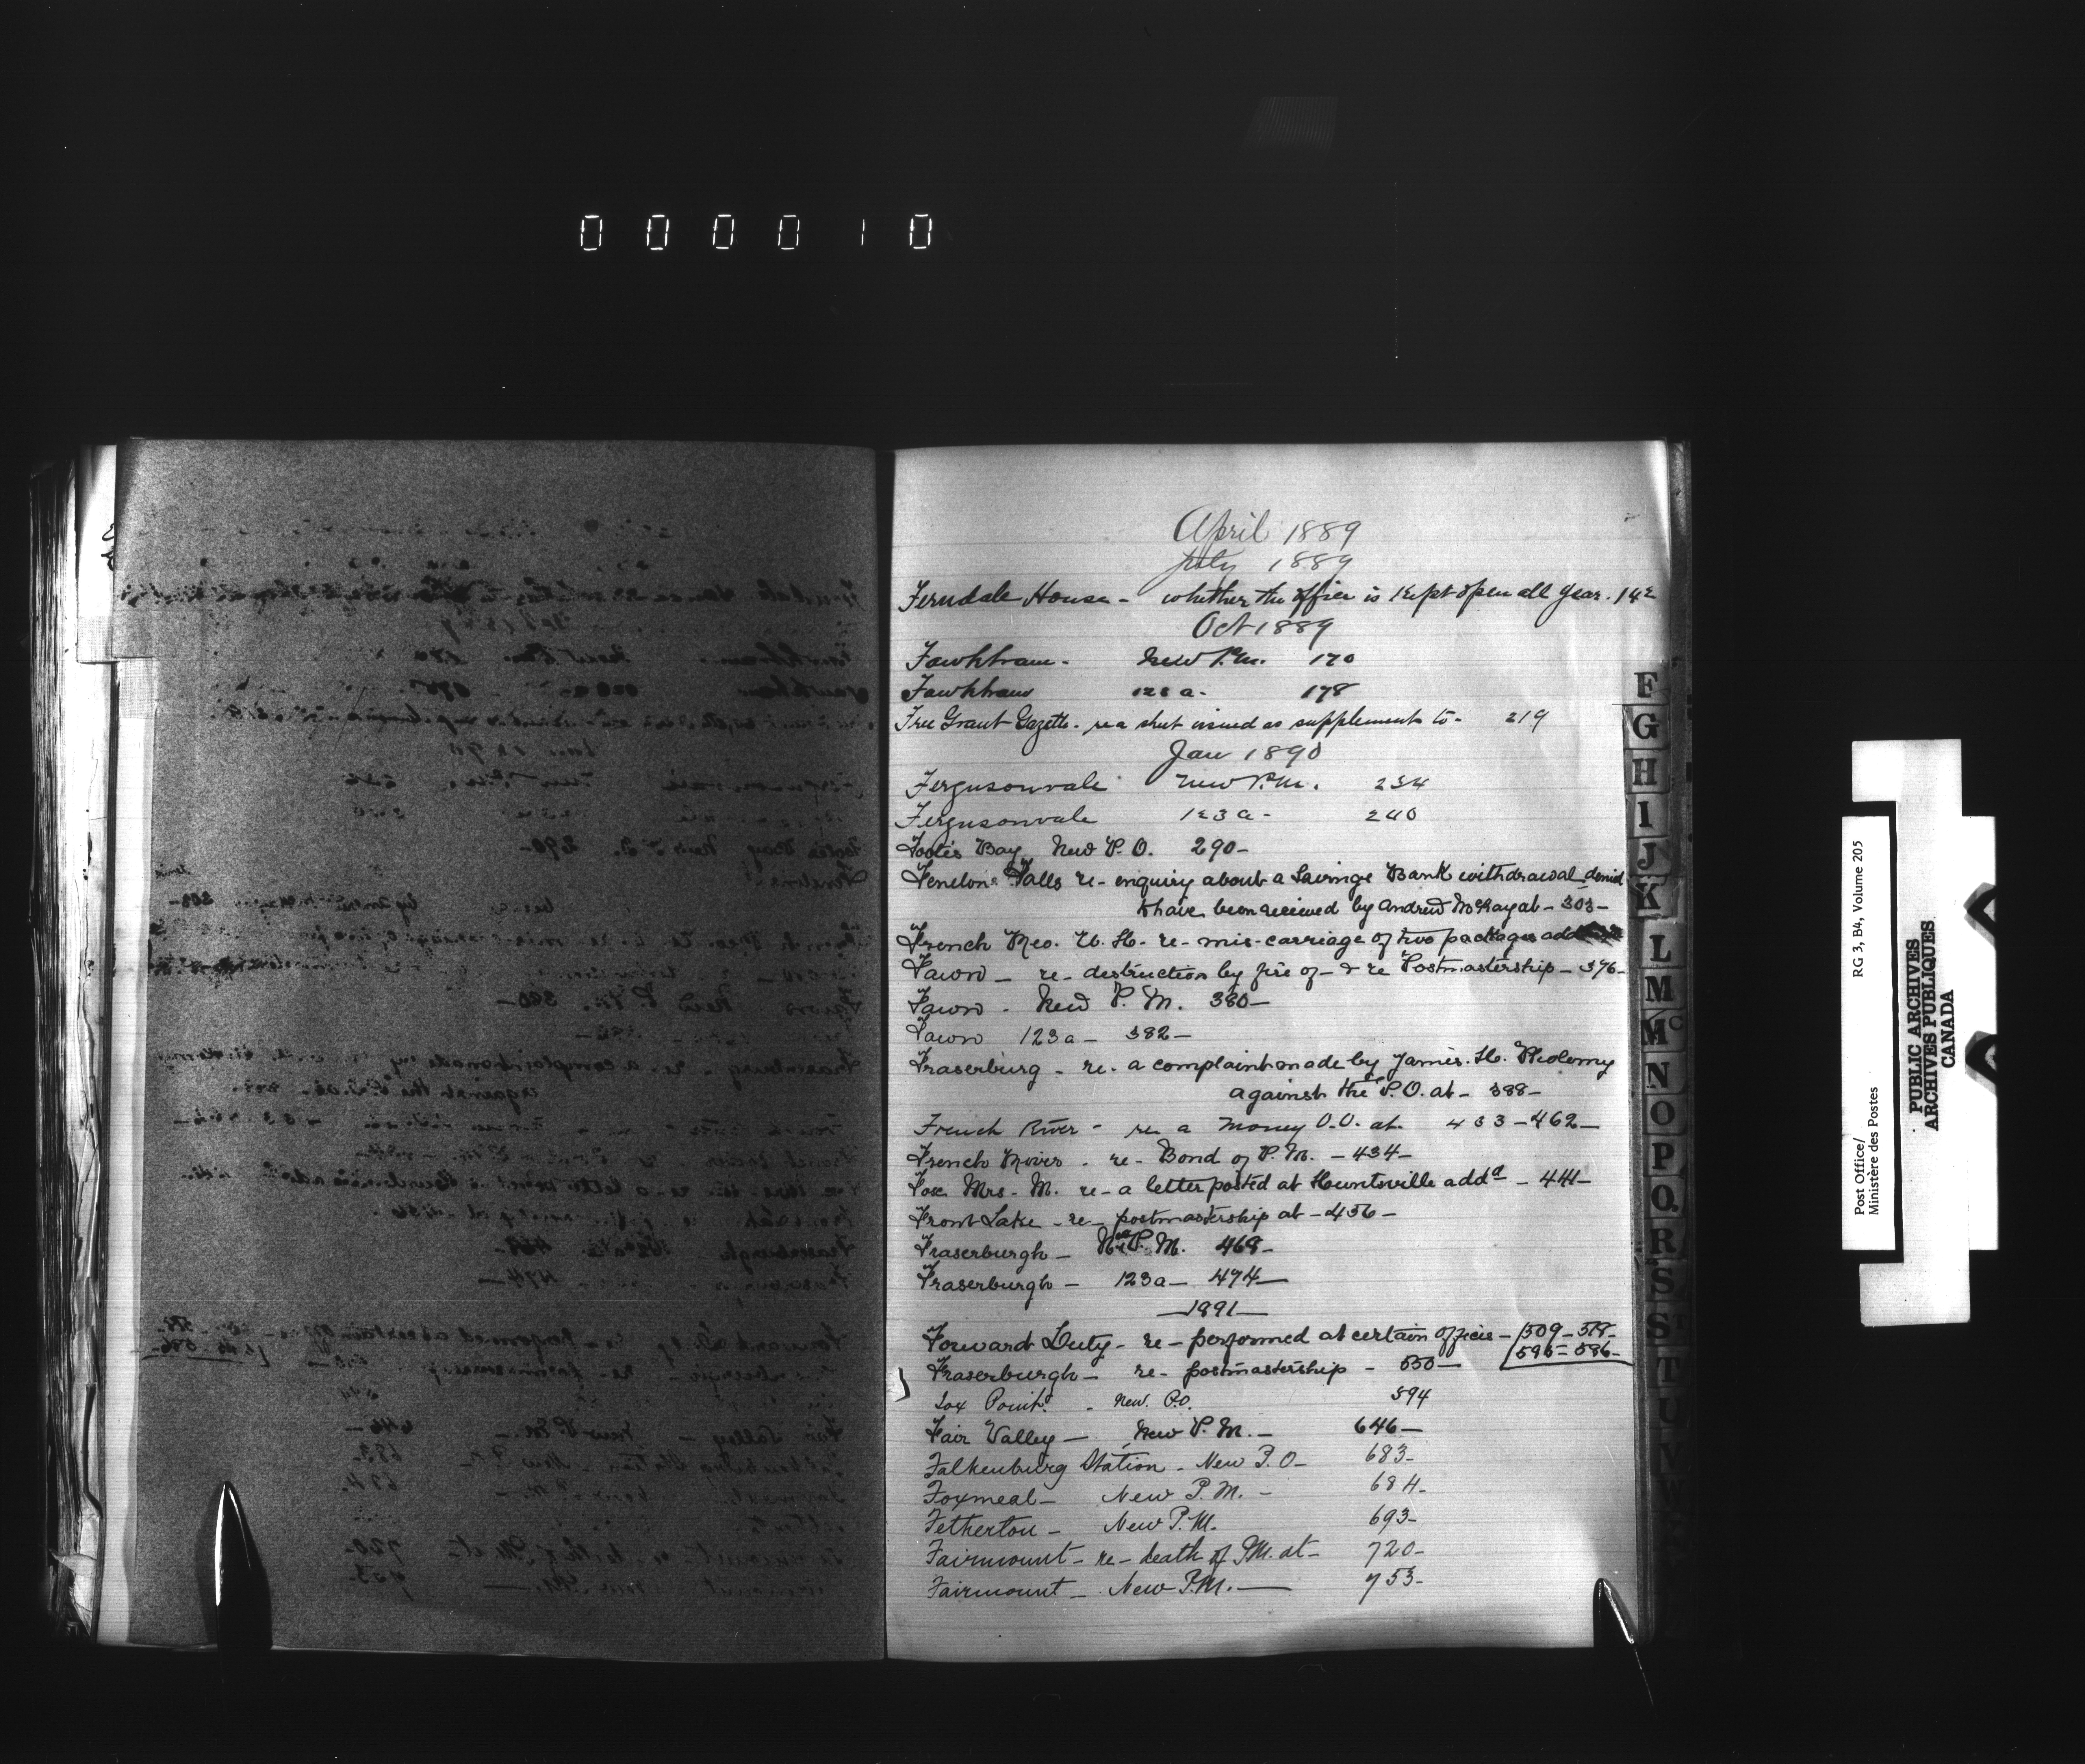 000010
April 1889
July 1889
Ferndale House - whether the office is kept open all year. 142
Oct 1889
Fawkham - New P.M. 170
Fawkham 123 a - 178
Free Grant Gazette - re a sheet issued as supplement to - 219
Jan 1890
Fergusonvale New P.M. 234
Fergusonvale 123 a - 240
Foote's Bay New P.O. 290 -
Fenelon Falls re - enquiry about a Savings Bank withdrawal denied
to have been received by Andrew McKay at - 303 -
French Geo. W. H. re - mis-carriage of two packages
Fawn - re - destruction by fire of - & re Postmastership - 376 -
Fawn - New P. M. 380 -
Fawn 123 a - 382 -
Fraserburg - re - a complaint made by James. H. Ptolomy
against the P.O. at - 388 -
French River - re a Money O.O. at 433 - 462 -
French River - re - Bond of P. M. - 434 -
Fox Mrs - M. re - a letter posted at Huntsville addd - 441 -
Front Lake - re - postmastership at - 456 -
Fraserburgh - New P. M. 468 -
Fraserburgh - 123 a - 474 -
- 1891 -
Forward Duty - re - performed at certain offices - 509 - 518 -
595 - 596 -
Fraserburgh - re - postmastership - 550 -
Fox Point - New. P.O. 594
Fair Valley - New P. M. - 646 -
Falkenburg Station - New P. O - 683 -
Foxmeal - New P. M. - 684 -
Fetherton - New P. M. 693 -
Fairmount - re - death of P.M. at - 720 -
Fairmount - New P.M. - 753 -
F
G
H
I
J
K
L
M
Mc
N
O
P
Q
R
S
ST
T
U
V
W
Post Office/ RG 3, B4, Volume 205
Ministère des Postes
PUBLIC ARCHIVES
ARCHIVES PUBLIQUES
CANADA